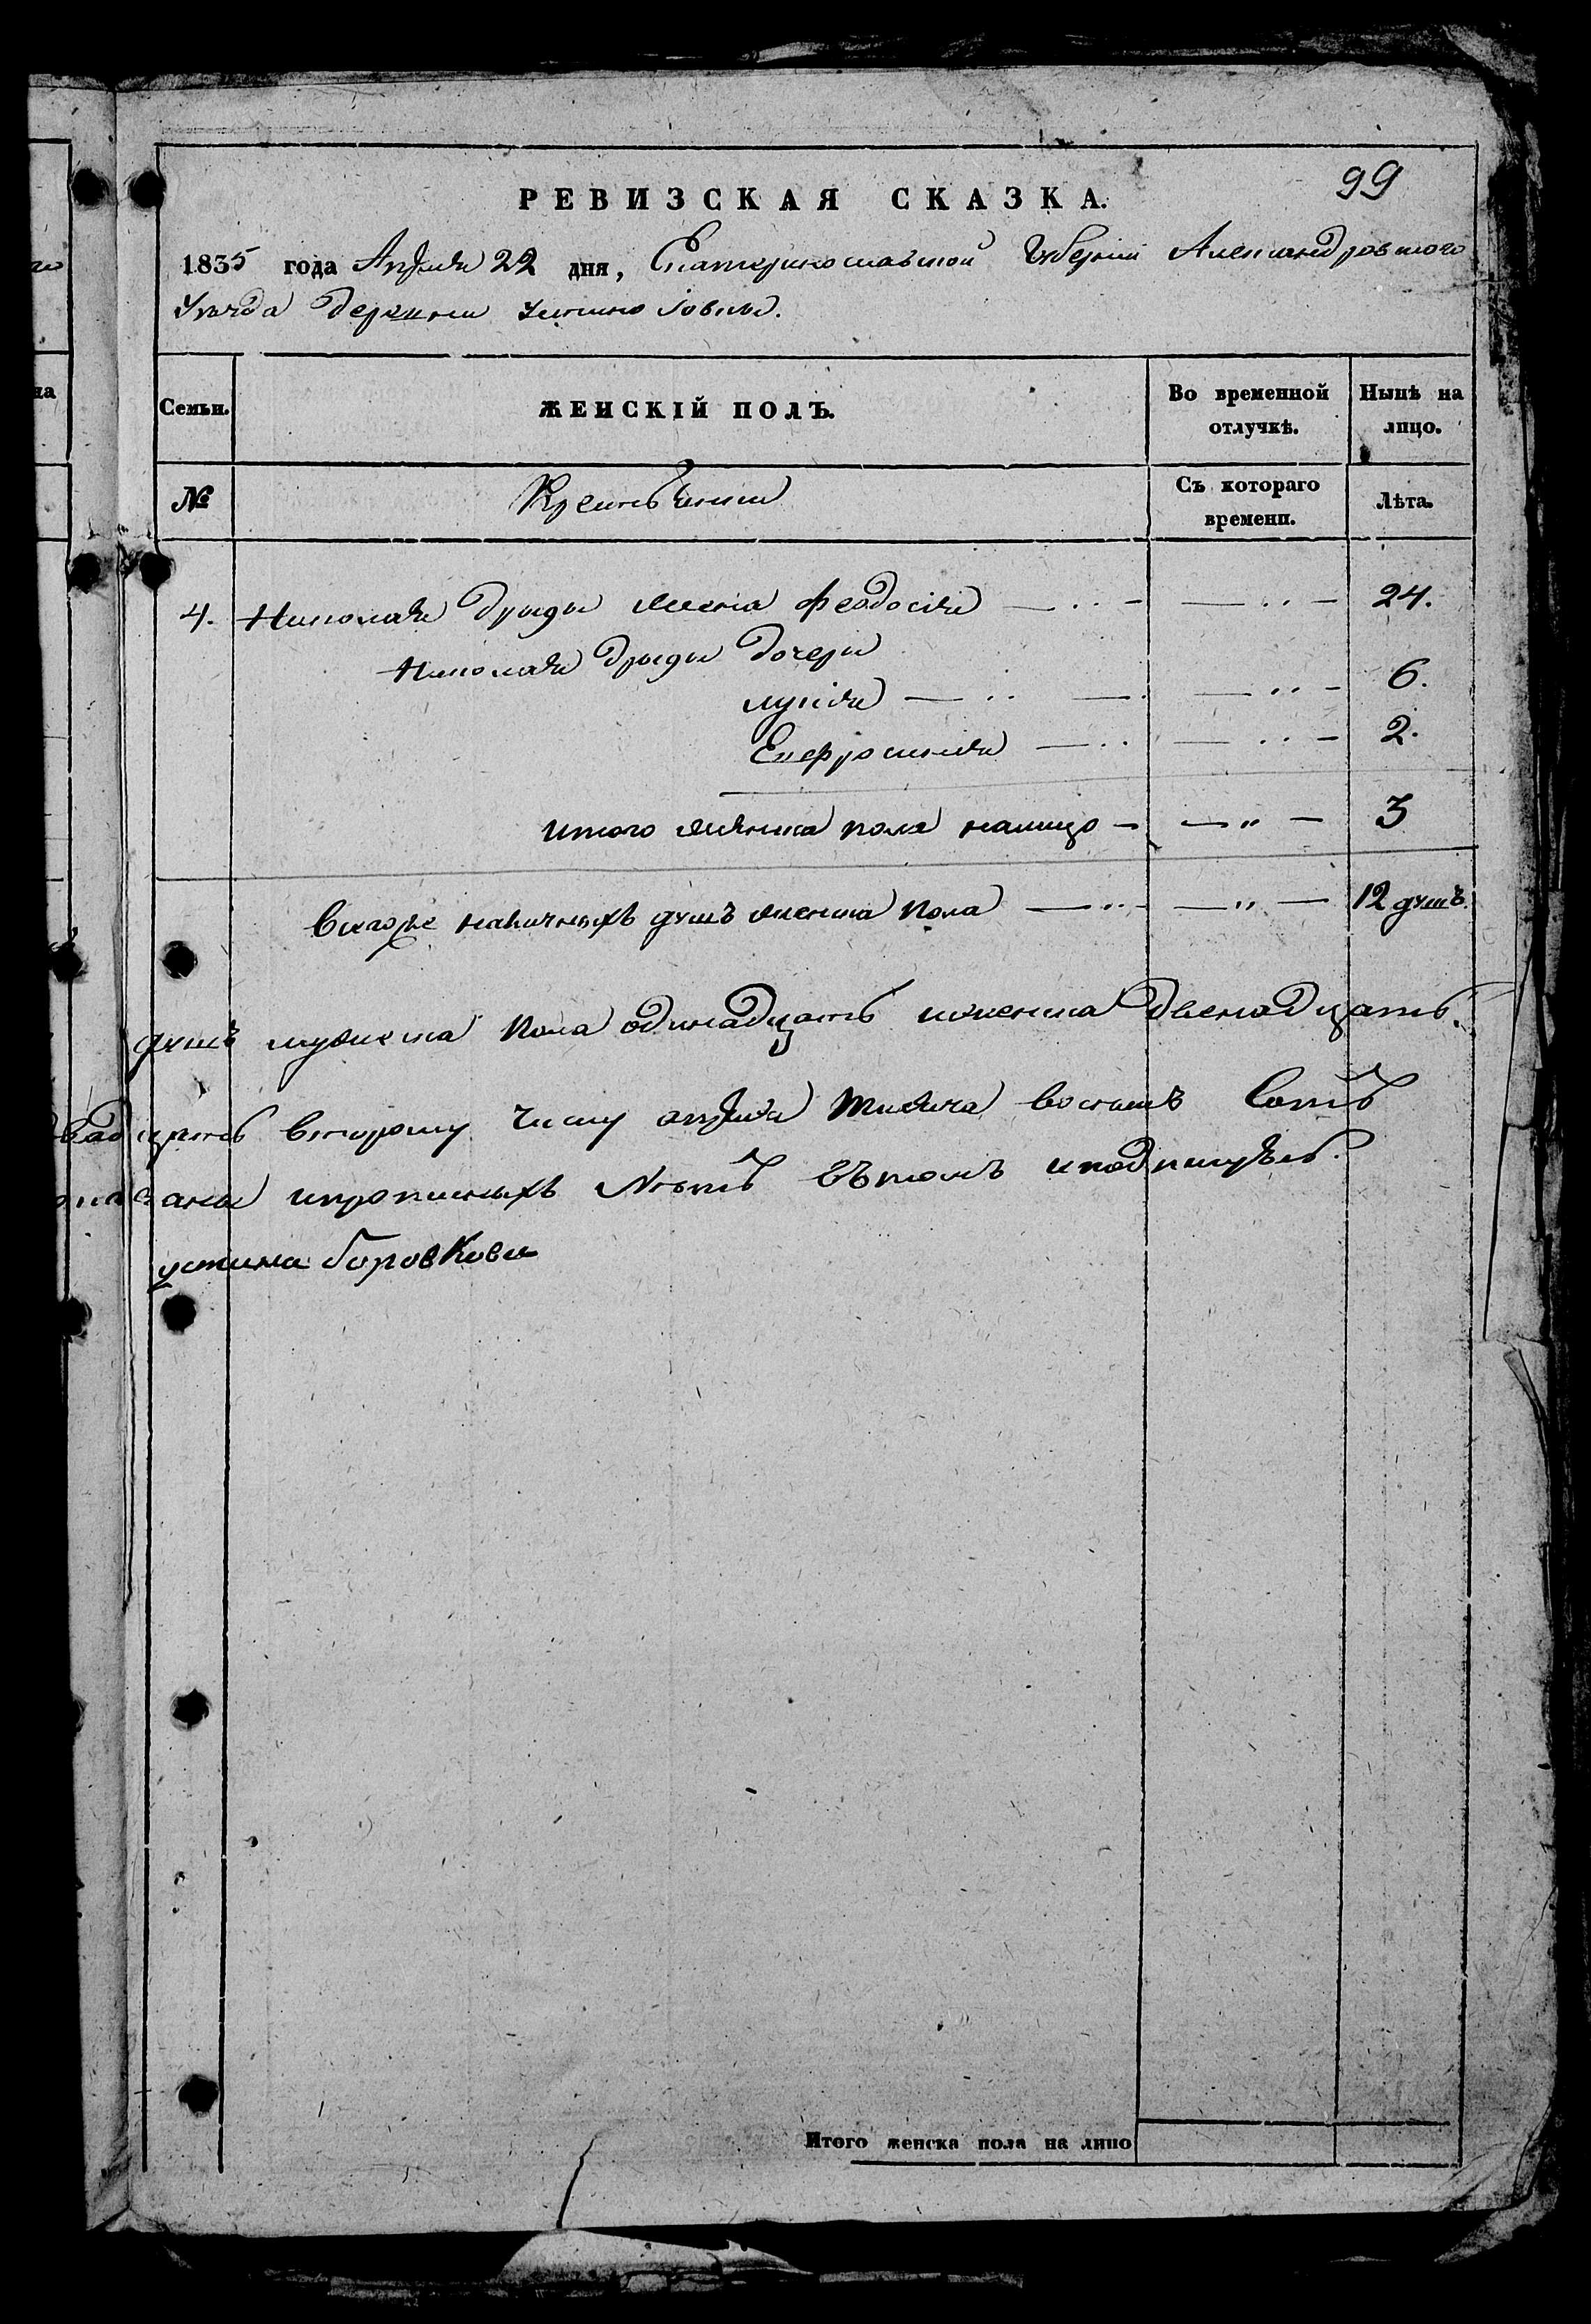 99
РЕВИЗСКАЯ СКАЗКА.
1835 года Апреля 22 дня, Екатеринославской Губернии Александровского
Уезда деревни Устиновки.
Семьи. ЖЕНСКІЙ ПОЛЪ. Во временной отлучкѣ. Нынѣ на лицо.
№ Крестьянки Съ котораго времени. Лѣта.
4. Николая Дриги жена Феодосія 24.
Николая Дриги дочери
лукія 6.
Ефросинія 2.
итого женска пола налицо 3
Всегоже наличныхъ душъ женска пола 12 душъ.
душъ мужеска пола одинадцать иженска двенадцать.
двадцать второму числу апреля тисяча восемъ Сотъ
заны ипрописныхъ Нѣтъ въ томъ иподпишусъ.
устина боровкова
Итого женска пола на лицо